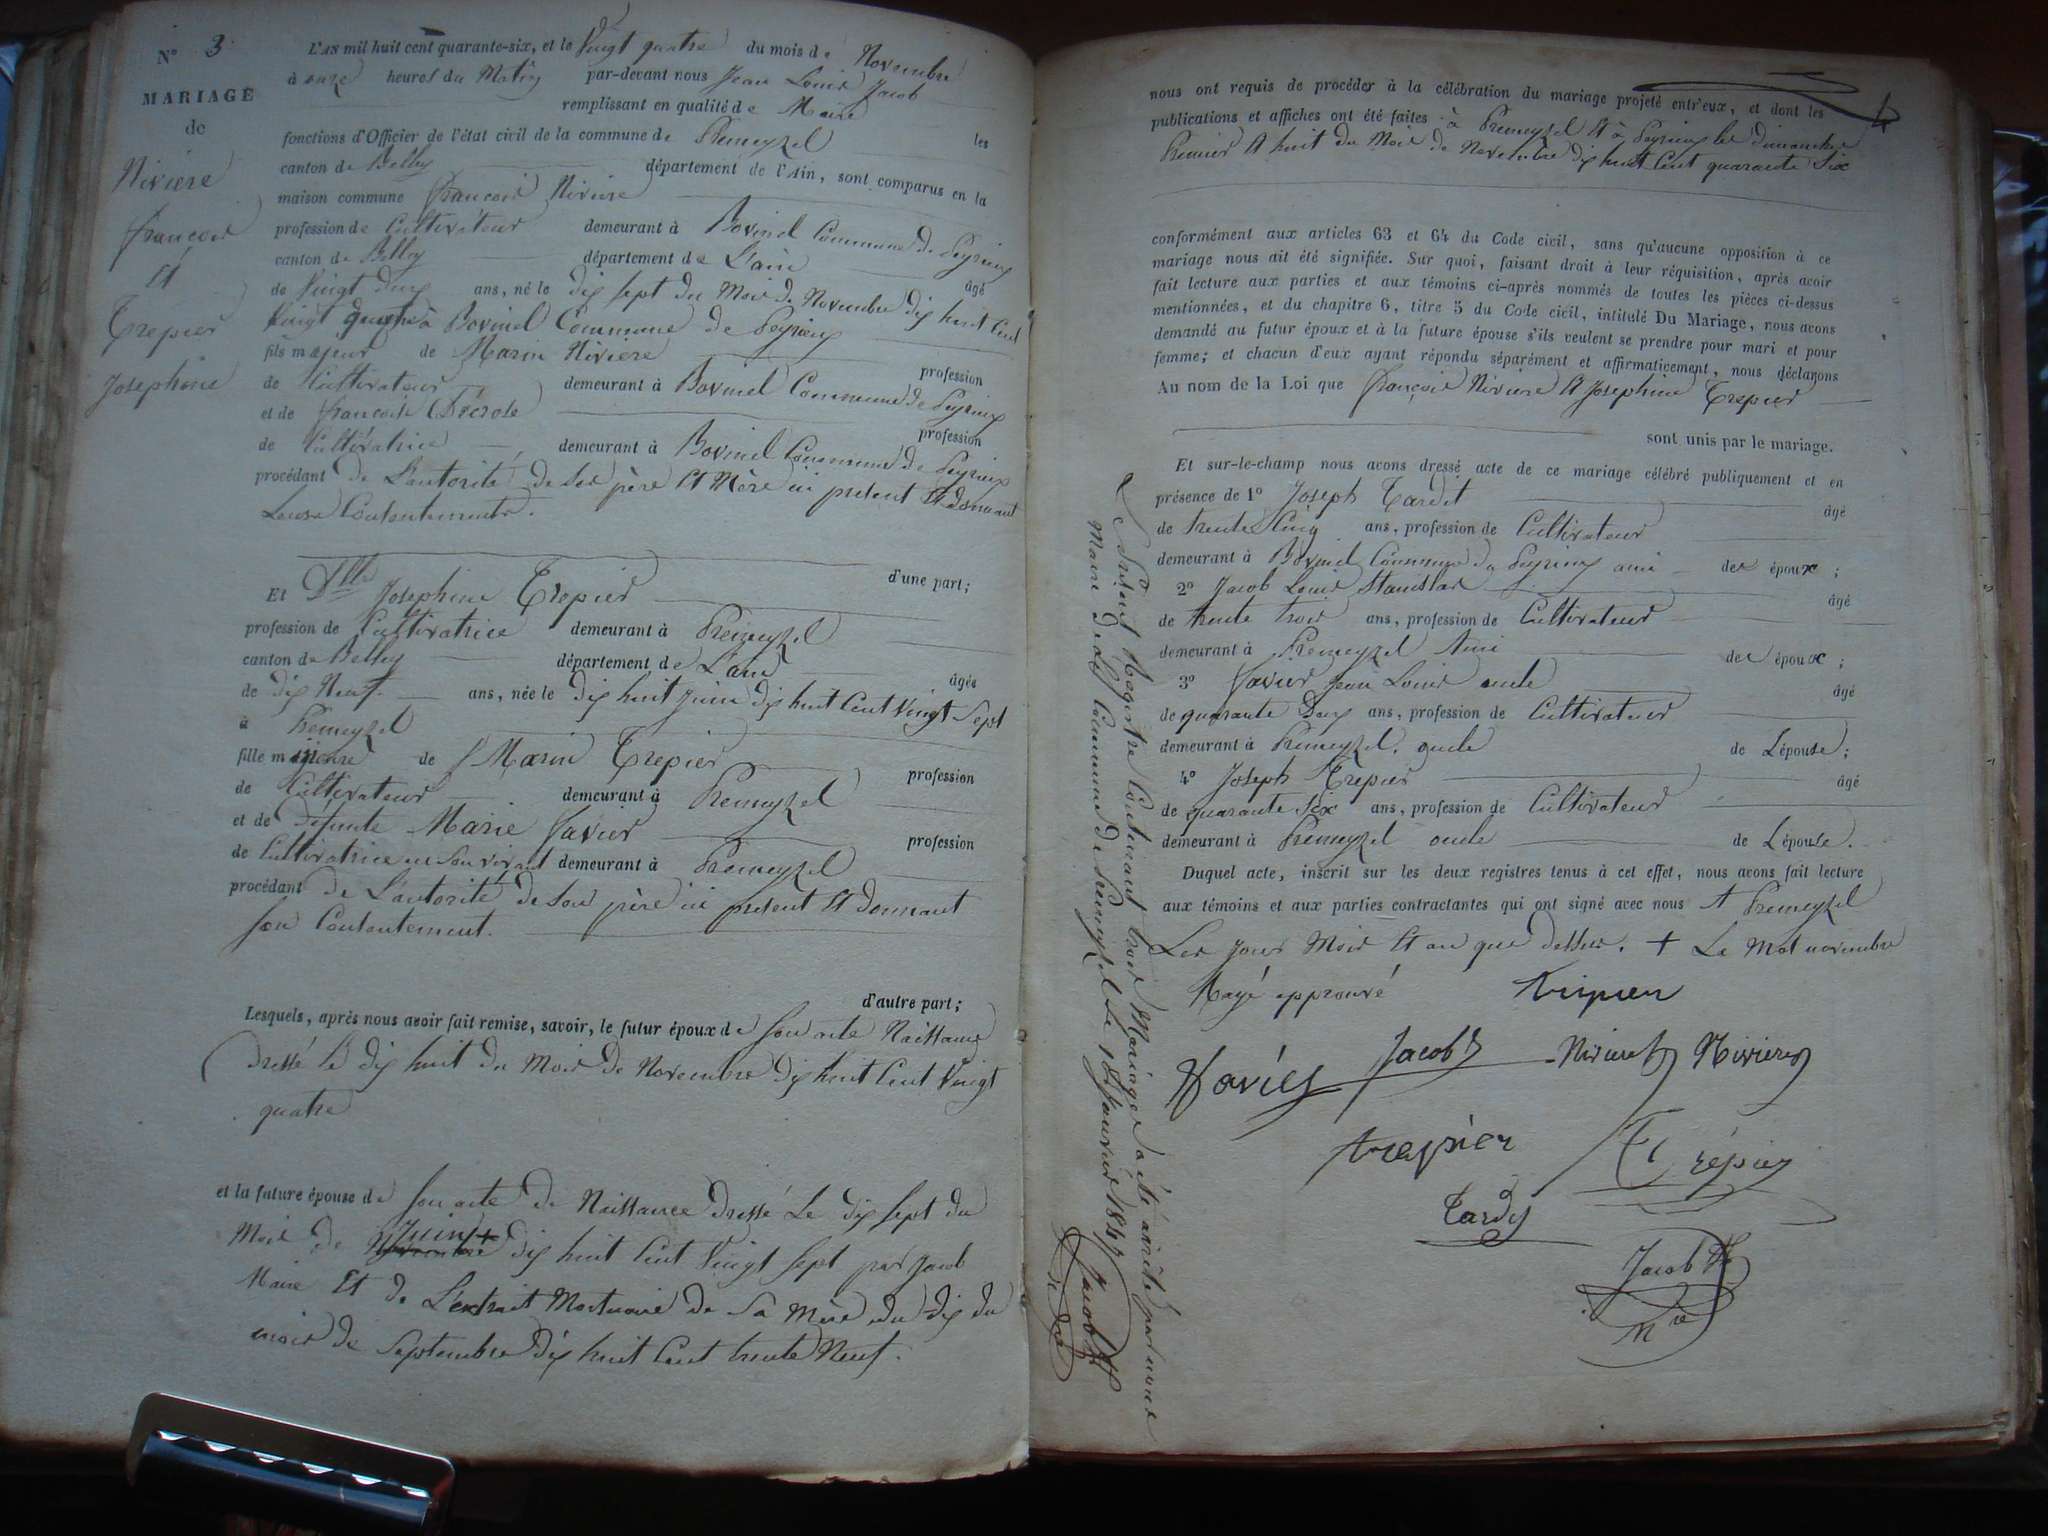 N° 3.
MARIAGE
de
Nivière
françois
Et
Trepier
Josephine
L'AN mil huit cent quarante-six, et le Vingt quatre du mois de Novembre
à onze heures du Matin par-devant nous Jean Louis Jacob
remplissant en qualité de Maire les
fonctions d'Officier de l'état civil de la commune de Premeyzel
canton de Belley département de l'Ain, sont comparus en la
maison commune françois Nivière
profession de Cultivateur demeurant à Bovinel Commune de Peyrieu
canton de Belley département de L'ain âgé
de Vingt deux ans, né le dix sept du Mois de Novembre dix huit Cent
Vingt quatre à Bovinel Commune de Peyrieu
fils majeur de Marin Nivière profession
de Cultivateur demeurant à Bovinel Commune de Peyrieu
et de françoise profession
de Cultivatrice demeurant à Bovinel Commune de Peyrieu
procédant de L'autorité de ses père Et Mère ici présent Et donnant
Leurs Consentements.
d'une part;
Et Dlle Josephine Trepier
profession de Cultivatrice demeurant à Premeyzel
canton de Belley département de L'ain âgée
de dix Neuf ans, née le dix huit juin dix huit Cent Vingt Sept
à Premeyzel
fille mineure de Marin Trepier profession
de Cultivateur demeurant à Premeyzel
et de défunte Marie Javier profession
de Cultivatrice en son vivant demeurant à Premeyzel
procédant de L'autorité de son père ici présent Et donnant
son Consentement.
d'autre part;
Lesquels, après nous avoir fait remise, savoir, le futur époux de son acte Naissance
dressé le dix huit du Mois de Novembre dix huit Cent Vingt
quatre
et la future épouse de son acte de Naissance dressé Le dix sept du
Mois de Novembre Juin + dix huit Cent Vingt Sept par Jacob
Maire Et de L'extrait Mortuaire de sa Mère du dix du
mois de Septembre dix huit Cent trente Neuf.
nous ont requis de procéder à la célébration du mariage projeté entr'eux, et dont les
publications et affiches ont été faites à Premeyzel Et à Peyrieu les dimanches
Premier Et huit du Mois de Novembre dix huit Cent quarante Six
conformément aux articles 63 et 64 du Code civil, sans qu'aucune opposition à ce
mariage nous ait été signifiée. Sur quoi, faisant droit à leur réquisition, après avoir
fait lecture aux parties et aux témoins ci-après nommés de toutes les pièces ci-dessus
mentionnées, et du chapitre 6, titre 5 du Code civil, intitulé Du Mariage, nous avons
demandé au futur époux et à la future épouse s'ils veulent se prendre pour mari et pour
femme; et chacun d'eux ayant répondu séparément et affirmativement, nous déclarons
Au nom de la Loi que françois Nivière Et Josephine Trepier
sont unis par le mariage.
Et sur-le-champ nous avons dressé acte de ce mariage célébré publiquement et en
présence de 1° Joseph Tardit âgé
de trente Cinq ans, profession de Cultivateur
demeurant à Bovinel Commune de Peyrieu ami des époux;
2° Jacob Louis Stanislas âgé
de trente trois ans, profession de Cultivateur
demeurant à Premeyzel Ami des époux;
3° Javier Jean Louis oncle âgé
de quarante Deux ans, profession de Cultivateur
demeurant à Premeyzel. oncle de L'épouse;
4° Joseph Trepier âgé
de quarante Six ans, profession de Cultivateur
demeurant à Premeyzel oncle de L'épouse.
Duquel acte, inscrit sur les deux registres tenus à cet effet, nous avons fait lecture
aux témoins et aux parties contractantes qui ont signé avec nous A Premeyzel
Les jour Mois Et an que dessus. + Le Mot novembre
Rayé approuvé
Javier Jacob Nivière Nivière
trepier Trépier
Tardy
Jacob
Le présent Registre Contenant trois Mariages a été arrêté par nous
Maire de La Commune de Premeyzel Le 1er Janvier 1847 Jacob